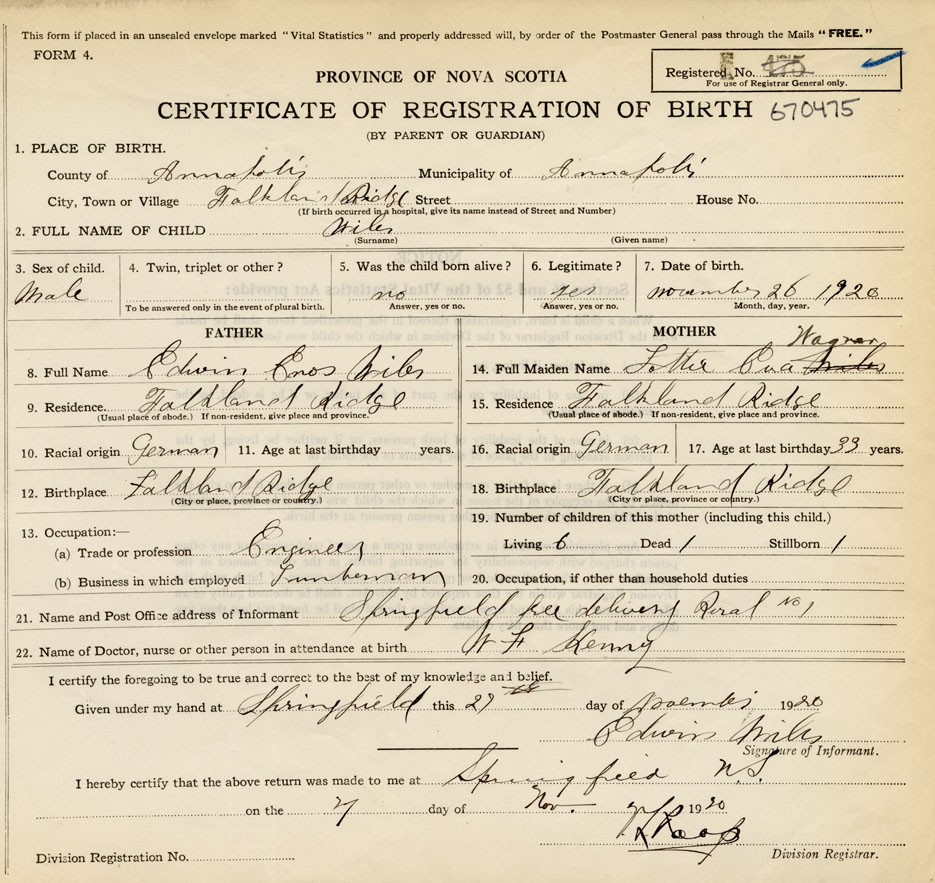 This form if placed in an unsealed envelope marked "Vital Statistics" and properly addressed will, by order of the Postmaster General pass through the Mails "FREE."
FORM 4.
Registered No. 475
For use of Registrar General only.
PROVINCE OF NOVA SCOTIA
CERTIFICATE OF REGISTRATION OF BIRTH 670475
(BY PARENT OR GUARDIAN)
1. PLACE OF BIRTH.
County of Annapolis Municipality of Annapolis
City, Town or Village Falkland Ridge Street House No.
(If birth occurred in a hospital, give its name instead of Street and Number)
2. FULL NAME OF CHILD Wiles
(Surname) (Given name)
3. Sex of child. 4. Twin, triplet or other? 5. Was the child born alive? 6. Legitimate? 7. Date of birth.
Male no yes november 26 1920
To be answered only in the event of plural birth. Answer, yes or no. Answer, yes or no. Month, day, year.
FATHER MOTHER
Wagner
8. Full Name Edwin Enos Wiles 14. Full Maiden Name Lottie Eva Wiles
9. Residence. Falkland Ridge 15. Residence Falkland Ridge
(Usual place of abode.) If non-resident, give place and province. (Usual place of abode.) If non-resident, give place and province.
10. Racial origin German 11. Age at last birthday years. 16. Racial origin German 17. Age at last birthday 33 years.
12. Birthplace Falkland Ridge 18. Birthplace Falkland Ridge
(City or place, province or country.) (City or place, province or country.)
13. Occupation:— 19. Number of children of this mother (including this child.)
(a) Trade or profession Engineer Living 6 Dead 1 Stillborn 1
(b) Business in which employed Lumberman 20. Occupation, if other than household duties
21. Name and Post Office address of Informant Springfield free delivery Rural No 1
22. Name of Doctor, nurse or other person in attendance at birth W F Kenny
I certify the foregoing to be true and correct to the best of my knowledge and belief.
Given under my hand at Springfield this 27th day of November 1920
Edwin Wiles
Signature of Informant.
I hereby certify that the above return was made to me at Springfield N.S.
on the 27 day of Nov. 1920
Division Registration No. Division Registrar.